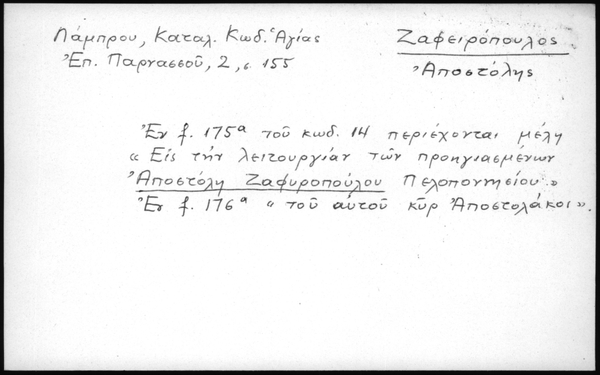 Λάμπρου, Καταλ. Κωδ. Ἁγίας
Ἐπ. Παρνασσοῦ, 2, σ. 155
Ζαφειρόπουλος
Ἀποστόλης
Ἐν f. 175ᵃ τοῦ κωδ. 14 περιέχονται μέλη
« Εἰς τὴν λειτουργίαν τῶν προηγιασμένων
Ἀποστόλη Ζαφυροπούλου Πελοποννησίου »
Ἐν f. 176ᵃ « τοῦ αὐτοῦ κῦρ Ἀποστολάκοι ».